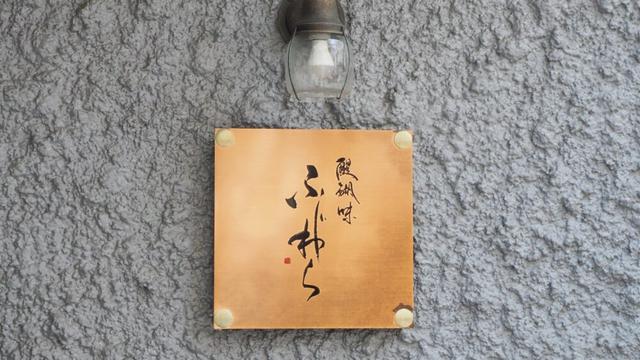 醍醐味
ふじわら